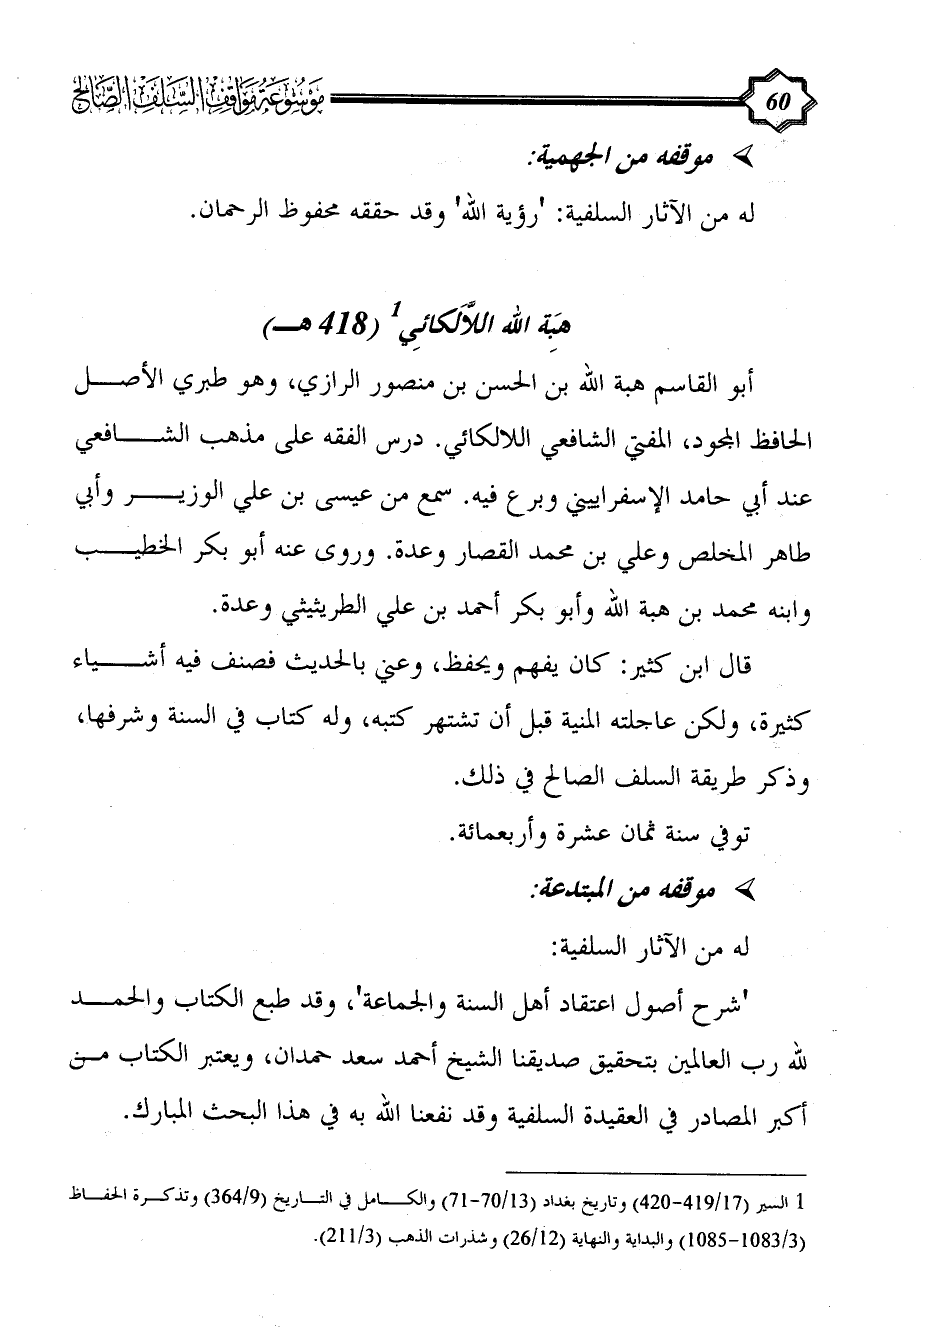 60
موسوعة مواقف السلف الصالح
موقفه من الجهمية:
له من الآثار السلفية: 'رؤية الله' وقد حققه محفوظ الرحمان.
هِبَة الله اللاَّلَكائِي1 (418 هـ)
أبو القاسم هبة الله بن الحسن بن منصور الرازي، وهو طبري الأصل
الحافظ المجود، المفتي الشافعي اللالكائي. درس الفقه على مذهب الشافعي
عند أبي حامد الإسفراييني وبرع فيه. سمع من عيسى بن علي الوزير وأبي
طاهر المخلص وعلي بن محمد القصار وعدة. وروى عنه أبو بكر الخطيب
وابنه محمد بن هبة الله وأبو بكر أحمد بن علي الطريثيثي وعدة.
قال ابن كثير: كان يفهم ويحفظ، وعني بالحديث فصنف فيه أشياء
كثيرة، ولكن عاجلته المنية قبل أن تشتهر كتبه، وله كتاب في السنة وشرفها،
وذكر طريقة السلف الصالح في ذلك.
توفي سنة ثمان عشرة وأربعمائة.
موقفه من المبتدعة:
له من الآثار السلفية:
'شرح أصول اعتقاد أهل السنة والجماعة'، وقد طبع الكتاب والحمد
لله رب العالمين بتحقيق صديقنا الشيخ أحمد سعد حمدان، ويعتبر الكتاب من
أكبر المصادر في العقيدة السلفية وقد نفعنا الله به في هذا البحث المبارك.
1 السير (17/419-420) وتاريخ بغداد (13/70-71) والكامل في التاريخ (9/364) وتذكرة الحفاظ
(3/1083-1085) والبداية والنهاية (12/26) وشذرات الذهب (3/211).